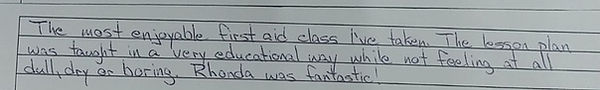 The most enjoyable first aid class I've taken. The lesson plan
was taught in a very educational way while not feeling at all
dull, dry or boring. Rhonda was fantastic!